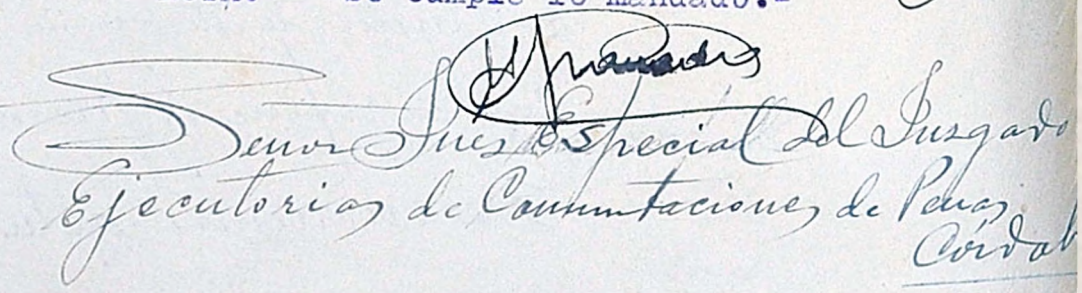 se cumple lo mandado.-
Señor Juez Especial del Jusgado
Ejecutorias de Conmutaciones de Penas
Córdob